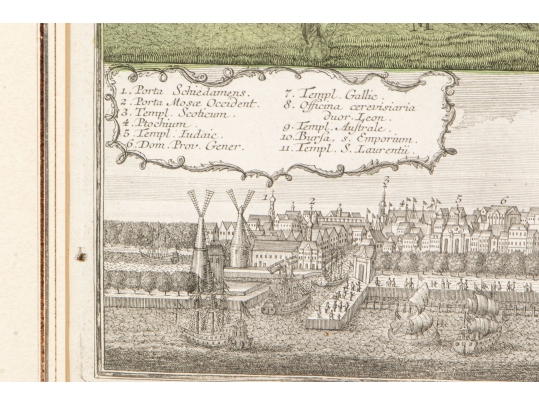 1. Porta Schiedamens.
2. Porta Mosæ Occident.
3. Templ. Scoticum.
4. Ptochium.
5. Templ. Iudaic.
6. Dom. Prov. Gener.
7. Templ. Gallic.
8. Officina cerevisiaria
duor. Leon.
9. Templ. Australe.
10. Bursa, s. Emporium.
11. Templ. S. Laurentii.
1 2 3 4 5 6